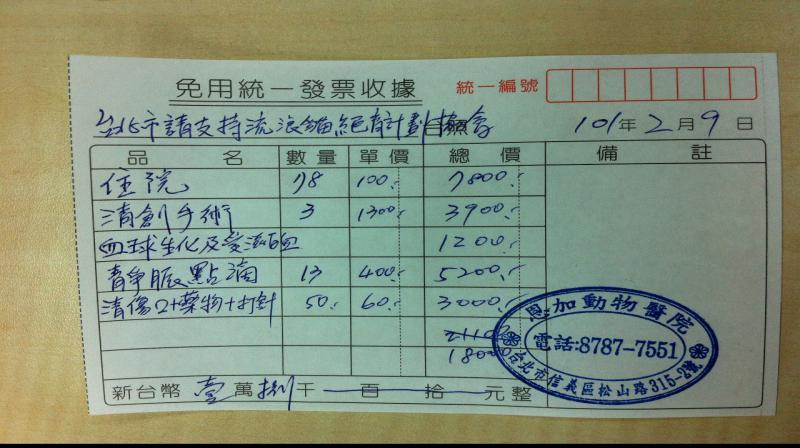 免用統一發票收據
統一編號
台北市請支持流浪貓絕育計劃協會 101年2月9日
品名 數量 單價 總價 備註
住院 78 100.- 7800.-
清創手術 3 1300.- 3900.-
血球生化及愛滋白血 1200.-
靜脈點滴 13 400.- 5200.-
清傷口+藥物+打針 50.- 60.- 3000.-
21100
18000
新台幣 壹萬捌千 百 拾 元整
恩加動物醫院
電話:8787-7551
台北市信義區松山路315-2號